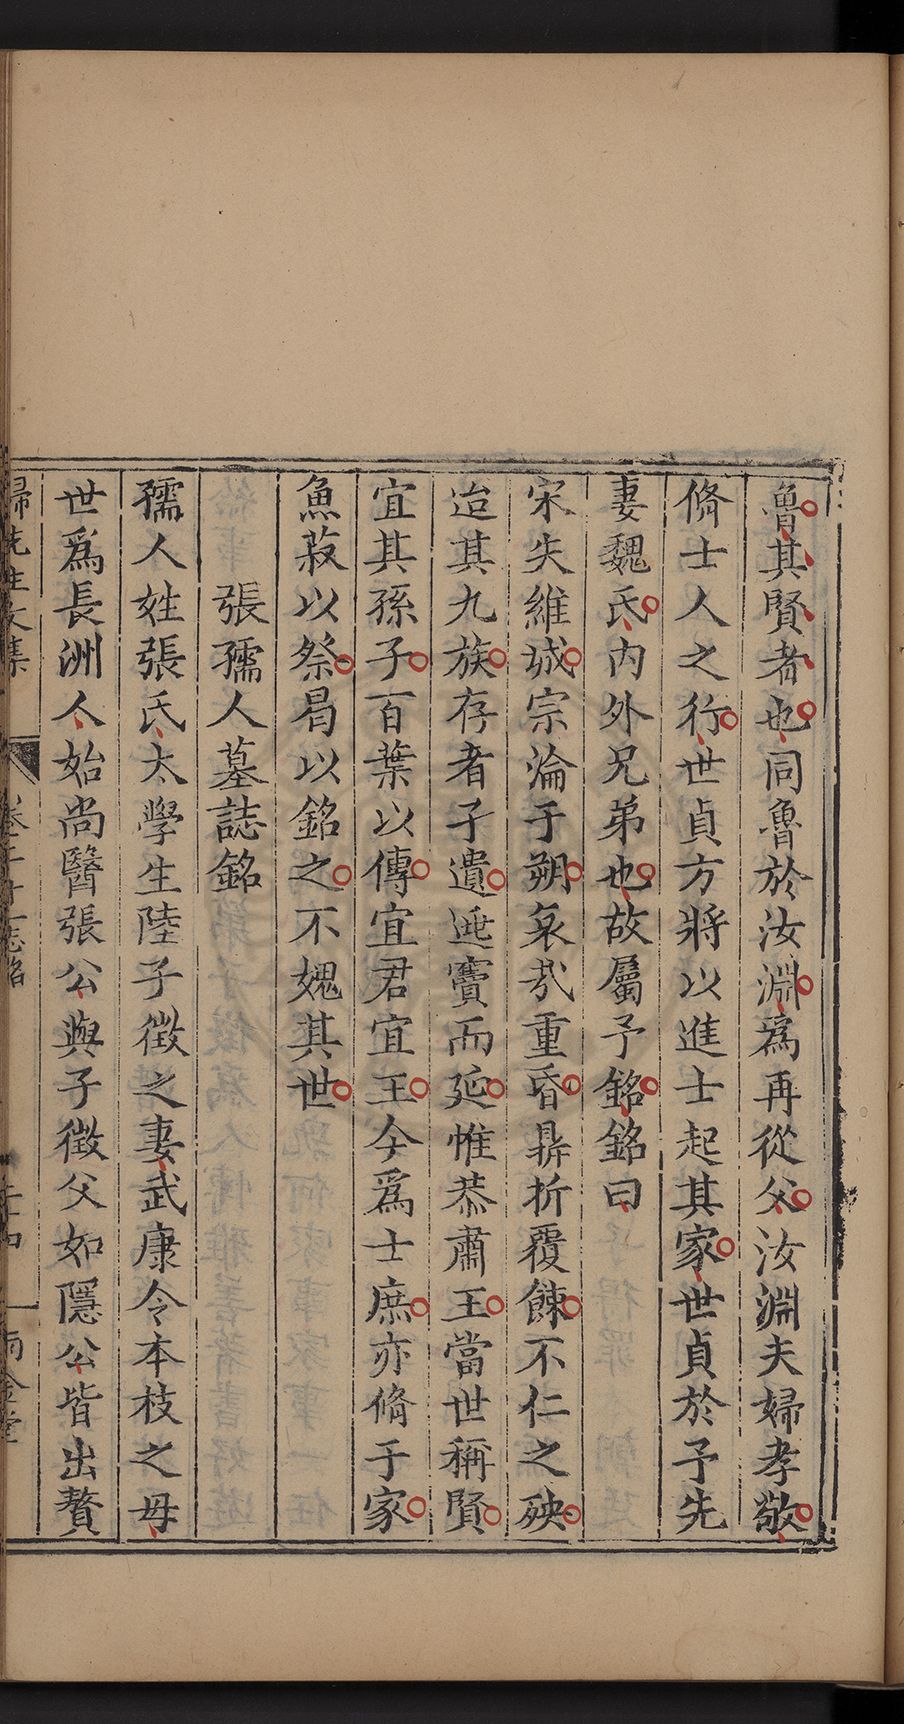 魯其賢者也同魯於汝淵爲再從父汝淵夫婦孝敬
脩士人之行世貞方將以進士起其家世貞於予先
妻魏氏内外兄弟也故屬予銘銘曰
宋失維城宗淪于朔哀哉重昏鼎折覆餗不仁之殃
迨其九族存者孑遺逃竇而延惟恭肅王當世稱賢
宜其孫子百葉以傳宜君宜王今爲士庶亦脩于家
魚菽以祭曷以銘之不媿其世
張孺人墓誌銘
孺人姓張氏太學生陸子徵之妻武康令本枝之母
世爲長洲人始尚醫張公與子徵父如隱公皆出贅
歸先生文集 卷二十一志銘 二十四 雨金堂